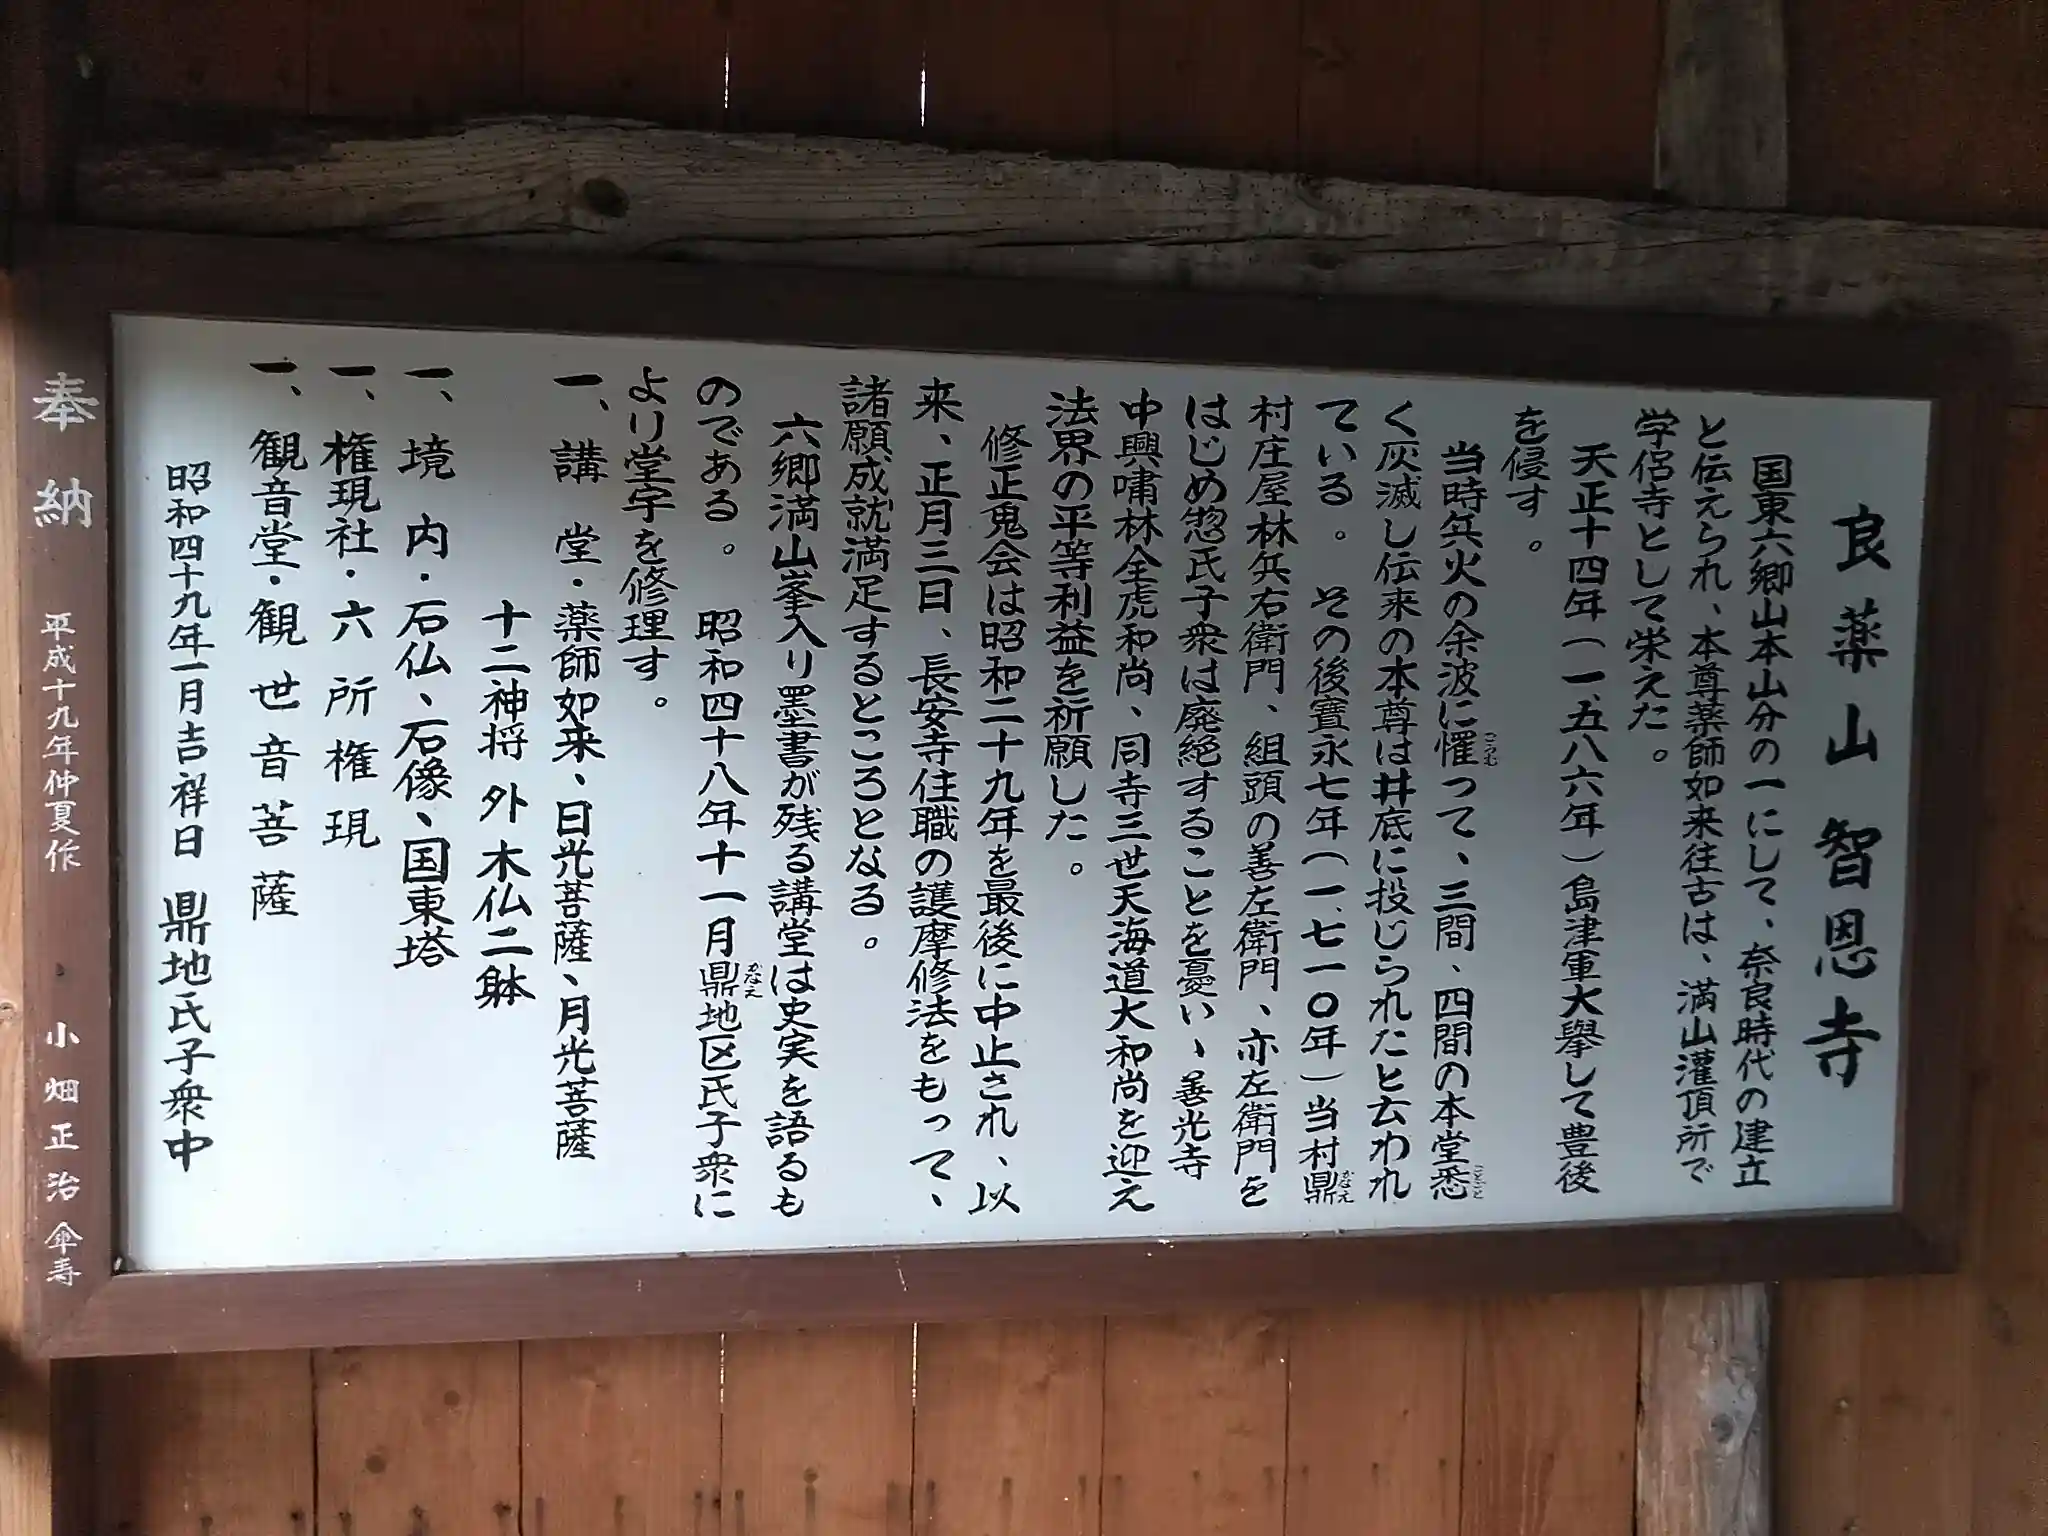 良薬山智恩寺
国東六郷山本山分の一にして、奈良時代の建立
と伝えられ、本尊薬師如来往古は、満山灌頂所で
学侶寺として栄えた。
天正十四年(一、五八六年)島津軍大擧して豊後
を侵す。
当時兵火の余波に罹つて、三間、四間の本堂悉
く灰滅し伝来の本尊は井底に投じられたと云われ
ている。その後寶永七年(一、七一〇年)当村鼎
村庄屋林兵右衛門、組頭の善左衛門、亦左衛門を
はじめ惣氏子衆は廃絶することを憂い、善光寺
中興嘯林全虎和尚、同寺三世天海道大和尚を迎え
法界の平等利益を祈願した。
修正鬼会は昭和二十九年を最後に中止され、以
来、正月三日、長安寺住職の護摩修法をもって、
諸願成就満足するところとなる。
六郷満山峯入り墨書が残る講堂は史実を語るも
のである。昭和四十八年十一月鼎地区氏子衆に
より堂宇を修理す。
一、講堂・薬師如来、日光菩薩、月光菩薩
十二神将 外木仏二躰
一、境内・石仏、石像、国東塔
一、権現社・六所権現
一、観音堂・観世音菩薩
昭和四十九年一月吉祥日 鼎地氏子衆中
奉納 平成十九年仲夏作 小畑正治 傘寿